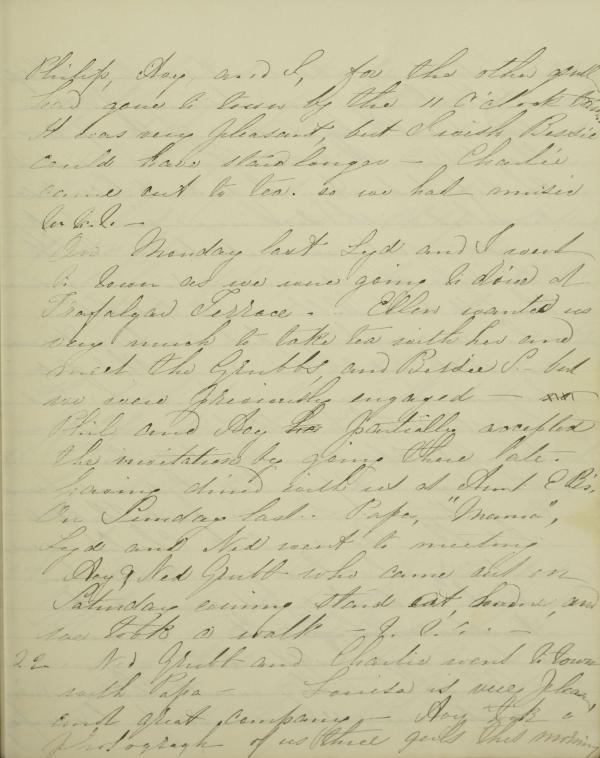 Philip, Hoy, and I, for the other gentl
had gone to town by the 11 O'clock train
It was very pleasant, but I wish Bessie
could have staid longer — Charlie
came out to tea. so we had music
&c. &c. —
On Monday last Lyd and I went
to town as we were going to dine at
Trafalgar Terrace. Ellen wanted us
very much to take tea with her and
meet the Grubbs, and Bessie S. — but
we were previously engaged —
Phil and Hoy partially accepted
the invitation by going there late.
having dined with us at Aunt E B's,
On Sunday last.. Papa, "Mama",
Lyd and Ned went to meeting
Hoy & Ned Grubb who came out on
Saturday evening staid at home, and
we took a walk —
22 Ned Grubb and Charlie went to town
with Papa — Louisa is very pleas,
ant great company — Hoy took a
photograph of us three girls this morning